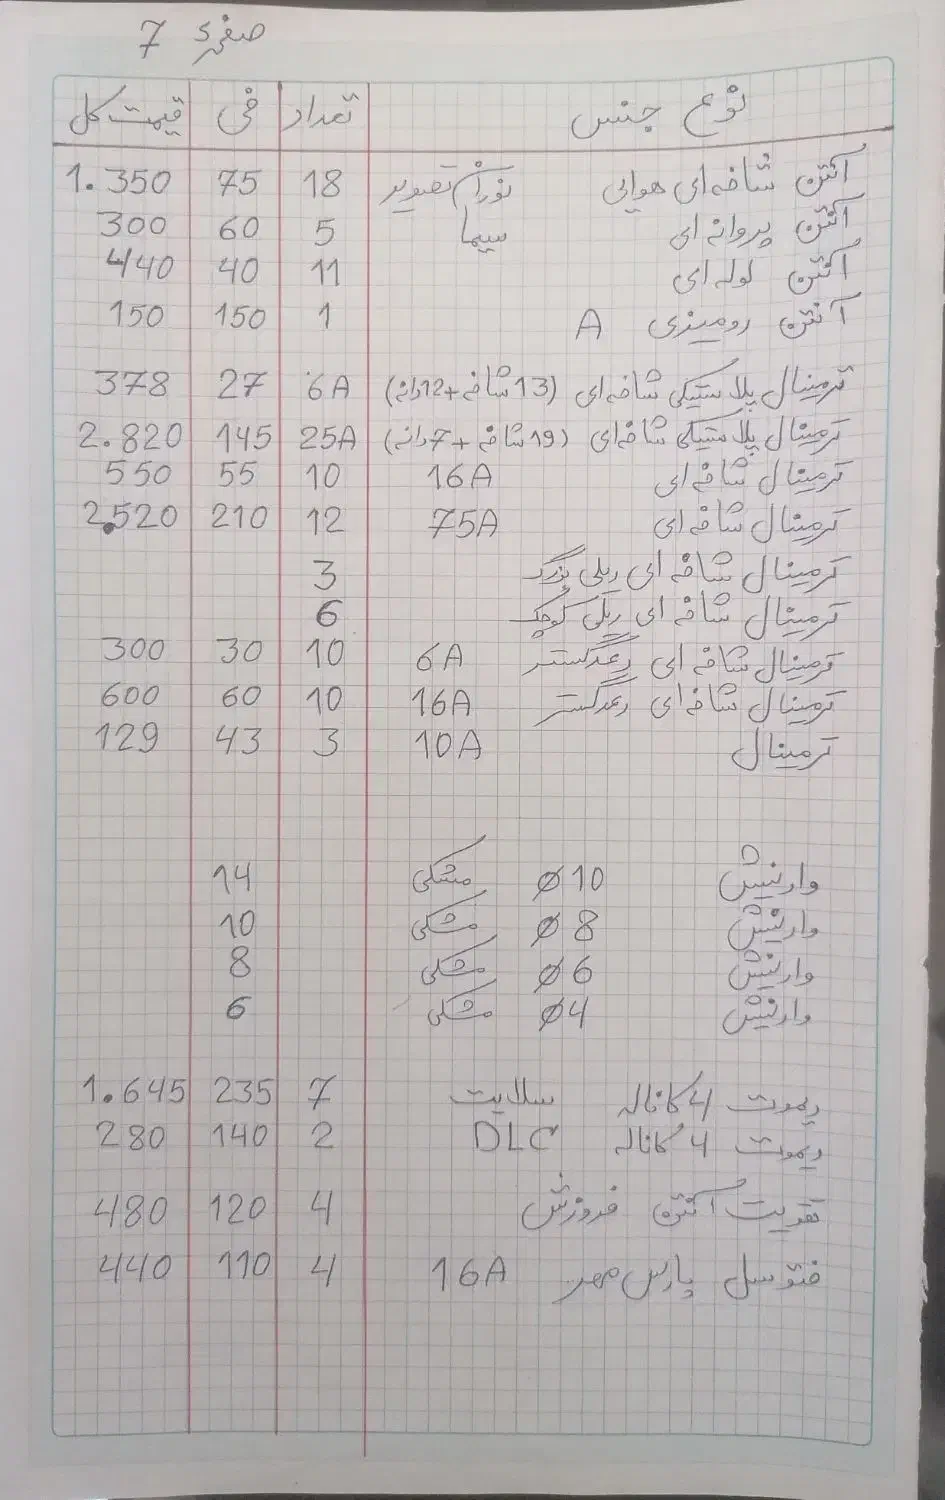 صفحه 7
نوع جنس تعداد فی قیمت کل
آنتن شاخه‌ای هوایی نورآرا تصویر 18 75 1.350
آنتن پروانه‌ای سیما 5 60 300
آنتن لوله‌ای 11 40 440
آنتن رومیزی A 1 150 150
ترمینال پلاستیکی شاخه‌ای (13 شاخه + 12 دانه) 6A 27 378
ترمینال پلاستیکی شاخه‌ای (19 شاخه + 7 دانه) 25A 145 2.820
ترمینال شاخه‌ای 16A 10 55 550
ترمینال شاخه‌ای 75A 12 210 2.520
ترمینال شاخه‌ای ریلی بزرگ 3
ترمینال شاخه‌ای ریلی کوچک 6
ترمینال شاخه‌ای رعدگستر 6A 10 30 300
ترمینال شاخه‌ای رعدگستر 16A 10 60 600
ترمینال 10A 3 43 129
وارنیش ⌀10 مشکی 14
وارنیش ⌀8 مشکی 10
وارنیش ⌀6 مشکی 8
وارنیش ⌀4 مشکی 6
ریموت 4 کاناله سلایت 7 235 1.645
ریموت 4 کاناله DLC 2 140 280
تقویت آنتن فروزش 4 120 480
فتوسل پارس مهر 16A 4 110 440